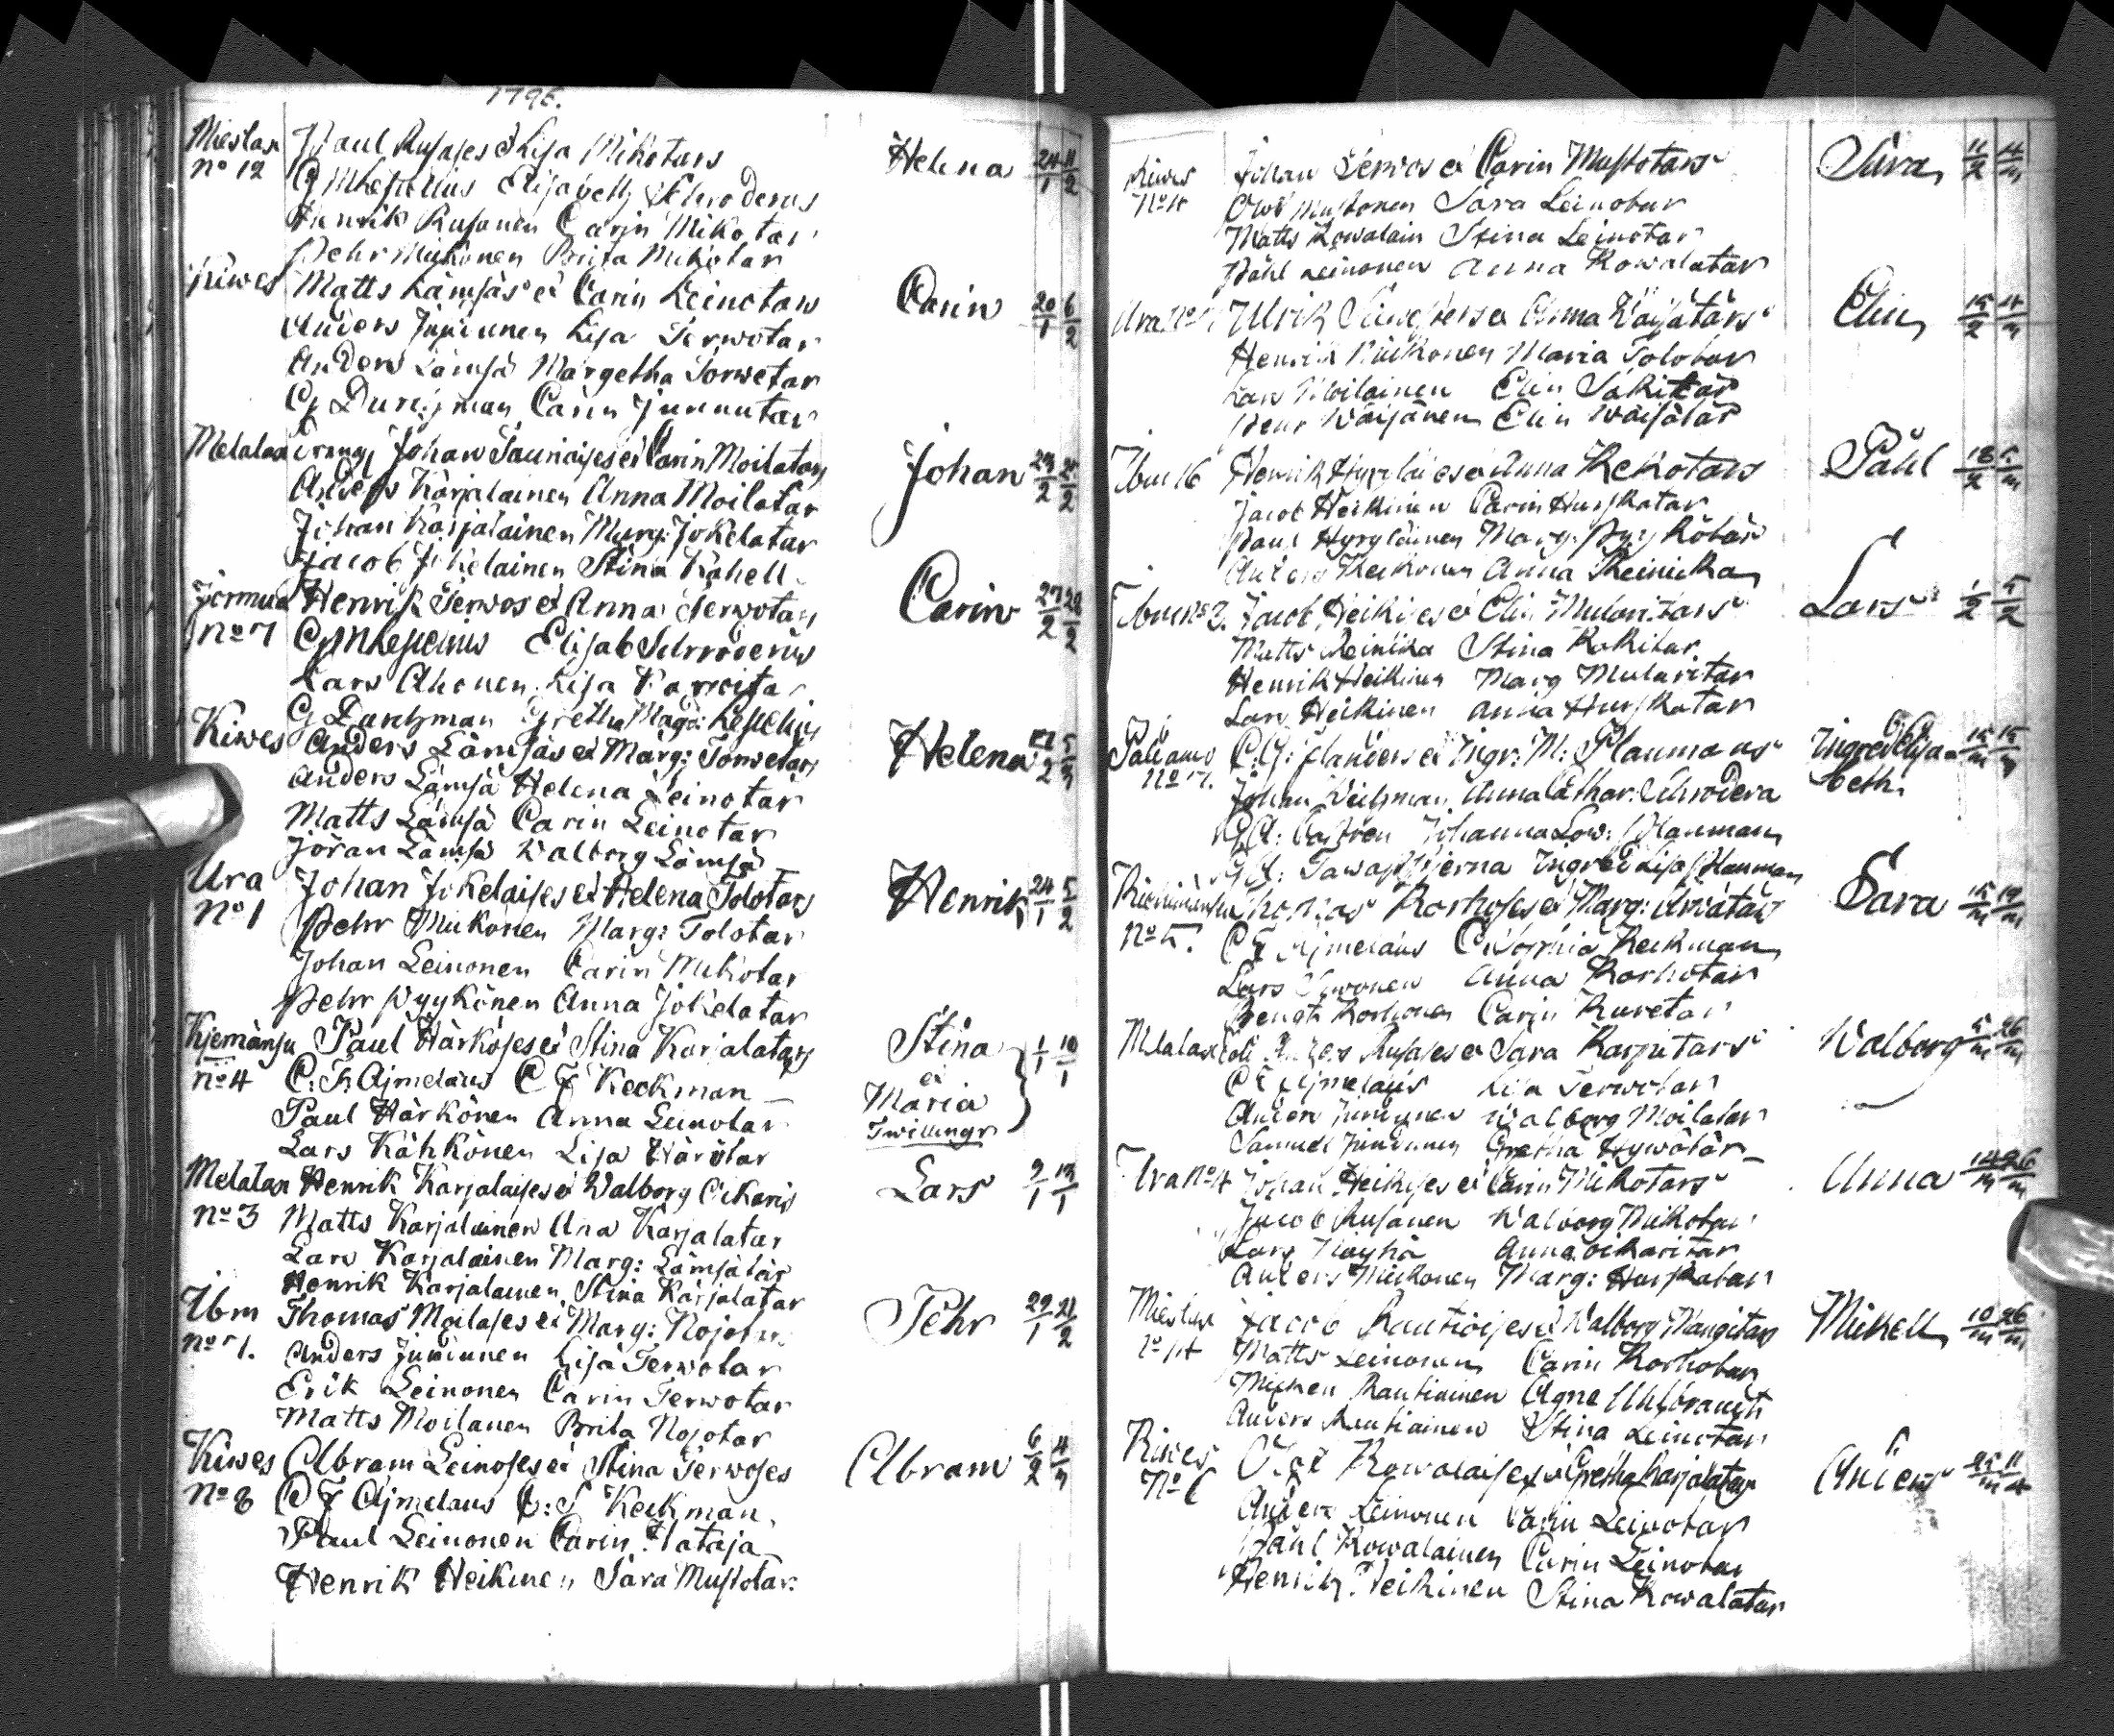 1795.
Mieslax Paul Rusases & Lisa Mikotars Helena 24/1 11/2
No 12 G M Lesselius Elisabeth Schroderus
Henrik Rusanen Carin Mikotar
Pehr Mickonen Brita Mikotar
Kiwes Matts Lämsäs et Carin Leinotars Carin 20/1 6/2
Anders Juntunen Lisa Terwotar
Anders Lämsä Margetha Torwetar
G Duncman Carin Juntutar
Melalax Johan Tauriaises et Carin Moilatars Johan 23/2 25/2
Anders Karjalainen Anna Moilatar
Johan Karjalainen Marg: Jokelatar
Jacob Jokelainen Stina Kahell
Jormua Henrik Terwos et Anna Terwotars Carin 27/2 28/2
No 7 G M Lesselius Elisab Schroderus
Lars Ahonen Lisa
G Dantzman Gretha Maga: Lesselius
Kiwes Anders Lämsäs et Marg: Torwetars Helena
Anders Lämsä Helena Leinotar
Matts Lämsä Carin Leinotar
Jöran Lämsä Walborg Lämsä
Ura Johan Jokelaises et Helena Tolotars Henrik 24/1 5/2
No 1 Pehr Mickonen Marg: Tolotar
Johan Leinonen Carin Mikotar
Pehr Pyykönen Anna Jokelatar
Kjemänsu Paul Härköses et Stina Karjalatars Stina 1/1 10/1
No 4 C. F. Ajmelaus C F Keckman et
Paul Härkönen Anna Leinotar Maria
Lars Kähkönen Lisa Härötar Twillingr
Melalax Henrik Karjalaises et Walborg Oikaris Lars 9/1 13/1
No 3 Matts Karjalainen Ana Karjalatar
Lars Karjalainen Marg: Lämsätär
Henrik Karjalainen Stina Karjalatar
Ibm Thomas Moilases et Marg: Nojotars Pehr 29/1 21/2
No 7. Anders Juntunen Lisa Terwotar
Erik Leinonen Carin Terwotar
Matts Moilanen Brita Nojotar
Kiwes Abram Leinoses et Stina Terwoses Abram 6/2 4/3
No 8 C F Ajmelaus C: S Keckman
Paul Leinonen Carin Hataja
Henrik Heikinen Sara Mustotar
Kiwes Johan Terwos et Carin Mustotars Sara 11/2 4/m
No 4 Olof Mustonen Sara Leinotar
Matts Kowalain Stina Leinotar
Påhl Leinonen Anna Kowalatar
Ura No Ulrik et Anna Wäisätärs Elin 15/2 4/m
Henrik Mickonen Maria Tolotar
Lars Moilainen Elin
Pehr Wäisänen Elin Wäisätär
Ibm 16 Henrik Hyryläises et Anna Kekotars Påhl 18/2
Jacob Heikinen Carin Hurskatar
Paul Hyryläinen Marg: Pyykötär
Anders Keckonen Anna Reinicka
Ibm No 3. Jacob Heikises et Elin Mularitars Lars 1/2 5/2
Matts Reinika Stina
Henrik Heikinen Marg Mularitar
Lars Heikinen Anna Hurskatar
Paldamo C. G: Flanders et Ingr: M: Planmans Ingred Elisabeth 15/m
No 17. Johan Weitzman Anna Cathar: Schrodera
G A: Castren Johanna Low: Planman
G A: Tawaststjerna Ingred Lisa Planman
Thomas Korhoses et Marg: Arvatars Sara 15/m 19/m
No 5. C F Ajmelaus C Sophia Keckman
Lars Anna Korhotar
Bengt Korhonen Carin Kuretar
Melalax Anders Rusases et Sara Karputars Walborg 5/m 26/m
C F Ajmelaus Lisa Terwotar
Anders Juntunen Walborg Moilatar
Samuel Juntunen Gretha Hywötär
Ura No 4 Johan Heikises et Carin Mikotars Anna 14/m 26/m
Jacob Rusanen Walborg Mikotar
Lars Anna Oikaritar
Anders Mickonen Marg: Hurskatar
Mieslax Jacob Rautioises et Walborg Wangitars Mickell 10/m 26/m
No 14 Matts Leinonen Carin Korhotar
Mickell Rautiainen Agne Uhlbrandt
Anders Rautiainen Stina Leinotar
Kiwes Olof Kowalaises et Gretha Karjalatars Anders 25/m 11/4
No 6 Anders Leinonen Carin Leinotar
Påhl Kowalainen Carin Leinotar
Henrik Heikinen Stina Kowalatar